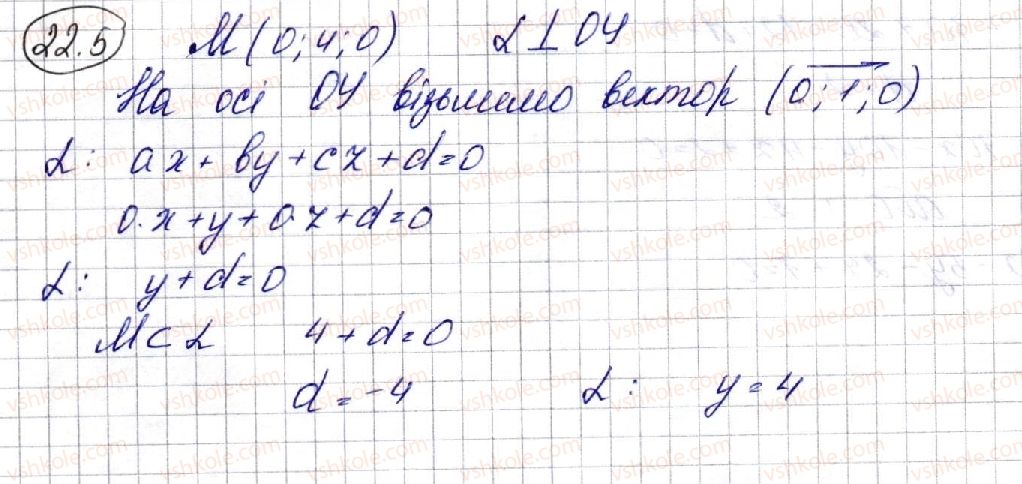 22.5 М(0; 4; 0) α ⊥ ОУ
На осі ОУ візьмемо вектор (0; 1; 0)
α: ax + вy + cz + d = 0
0·x + y + 0·z + d = 0
α: y + d = 0
М ⊂ α 4 + d = 0
d = -4 α: y = 4
vshkole.com